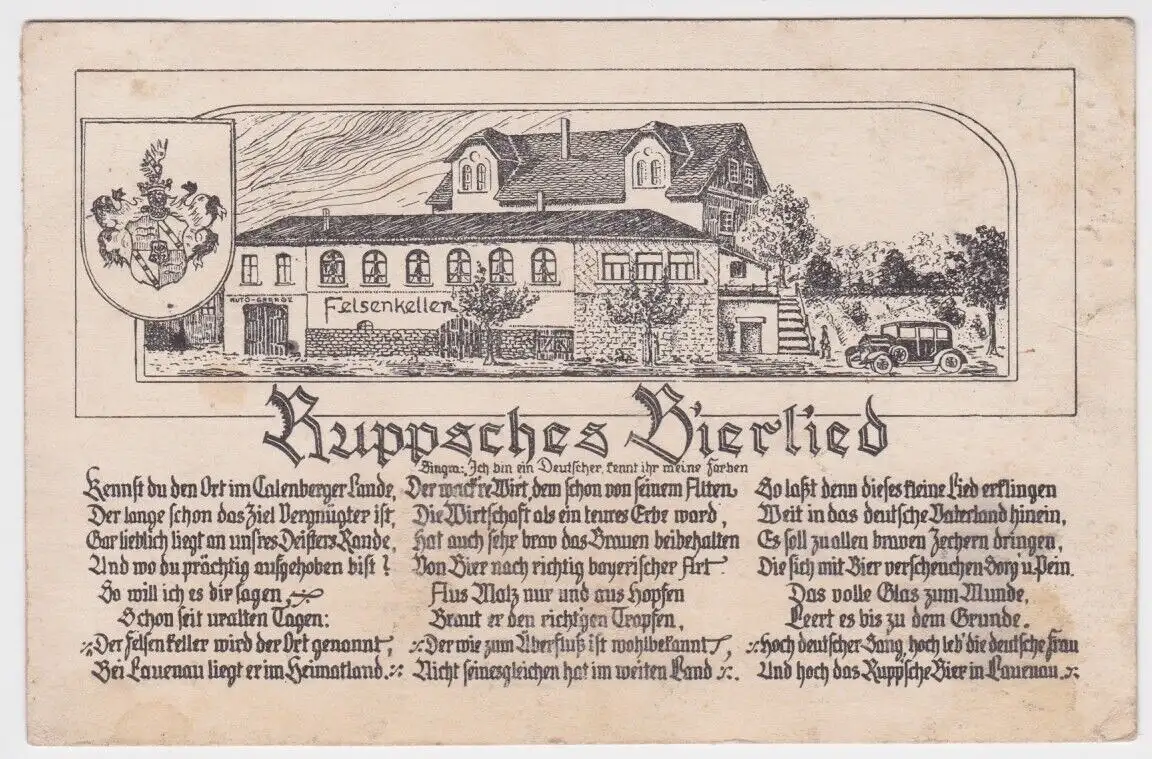 AUTO-GARAGE
Felsenkeller
Ruppsches Bierlied
Singw.: Ich bin ein Deutscher, kennt ihr meine Farben
Kennst du den Ort im Calenberger Lande,
Der lange schon das Ziel Vergnügter ist,
Gar lieblich liegt an unsres Deisters Rande,
Und wo du prächtig aufgehoben bist?
So will ich es dir sagen,
Schon seit uralten Tagen:
:Der Felsenkeller wird der Ort genannt,
Bei Lauenau liegt er im Heimatland.:
Der wack're Wirt, dem schon von seinem Alten
Die Wirtschaft als ein teures Erbe ward,
Hat auch sehr brav das Brauen beibehalten
Von Bier nach richtig bayerischer Art.
Aus Malz nur und aus Hopfen
Braut er den richt'gen Tropfen,
:Der wie zum Überfluß ist wohlbekannt,
Nicht seinesgleichen hat im weiten Land:.
So laßt denn dieses kleine Lied erklingen
Weit in das deutsche Vaterland hinein,
Es soll zu allen braven Zechern dringen,
Die sich mit Bier verscheuchen Sorg u. Pein.
Das volle Glas zum Munde,
Leert es bis zu dem Grunde.
:Hoch deutscher Sang, hoch leb' die deutsche Frau
Und hoch das Rupp'sche Bier in Lauenau.: